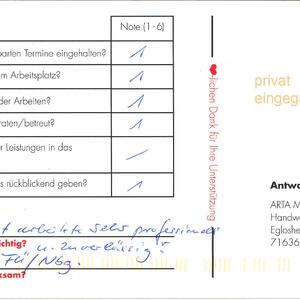 Note (1 - 6)
barten Termine eingehalten? 1
m Arbeitsplatz? 1
der Arbeiten? 1
raten/betreut? 1
r Leistungen in das
s rückblickend geben? 1
t arbeitete sehr professionell
chtig? u. zuverlässig!
Fü/Nbg.
ksam?
lichen Dank für Ihre Unterstützung
privat
eingega
Antwo
ARTA M
Handwe
Egloshe
71636